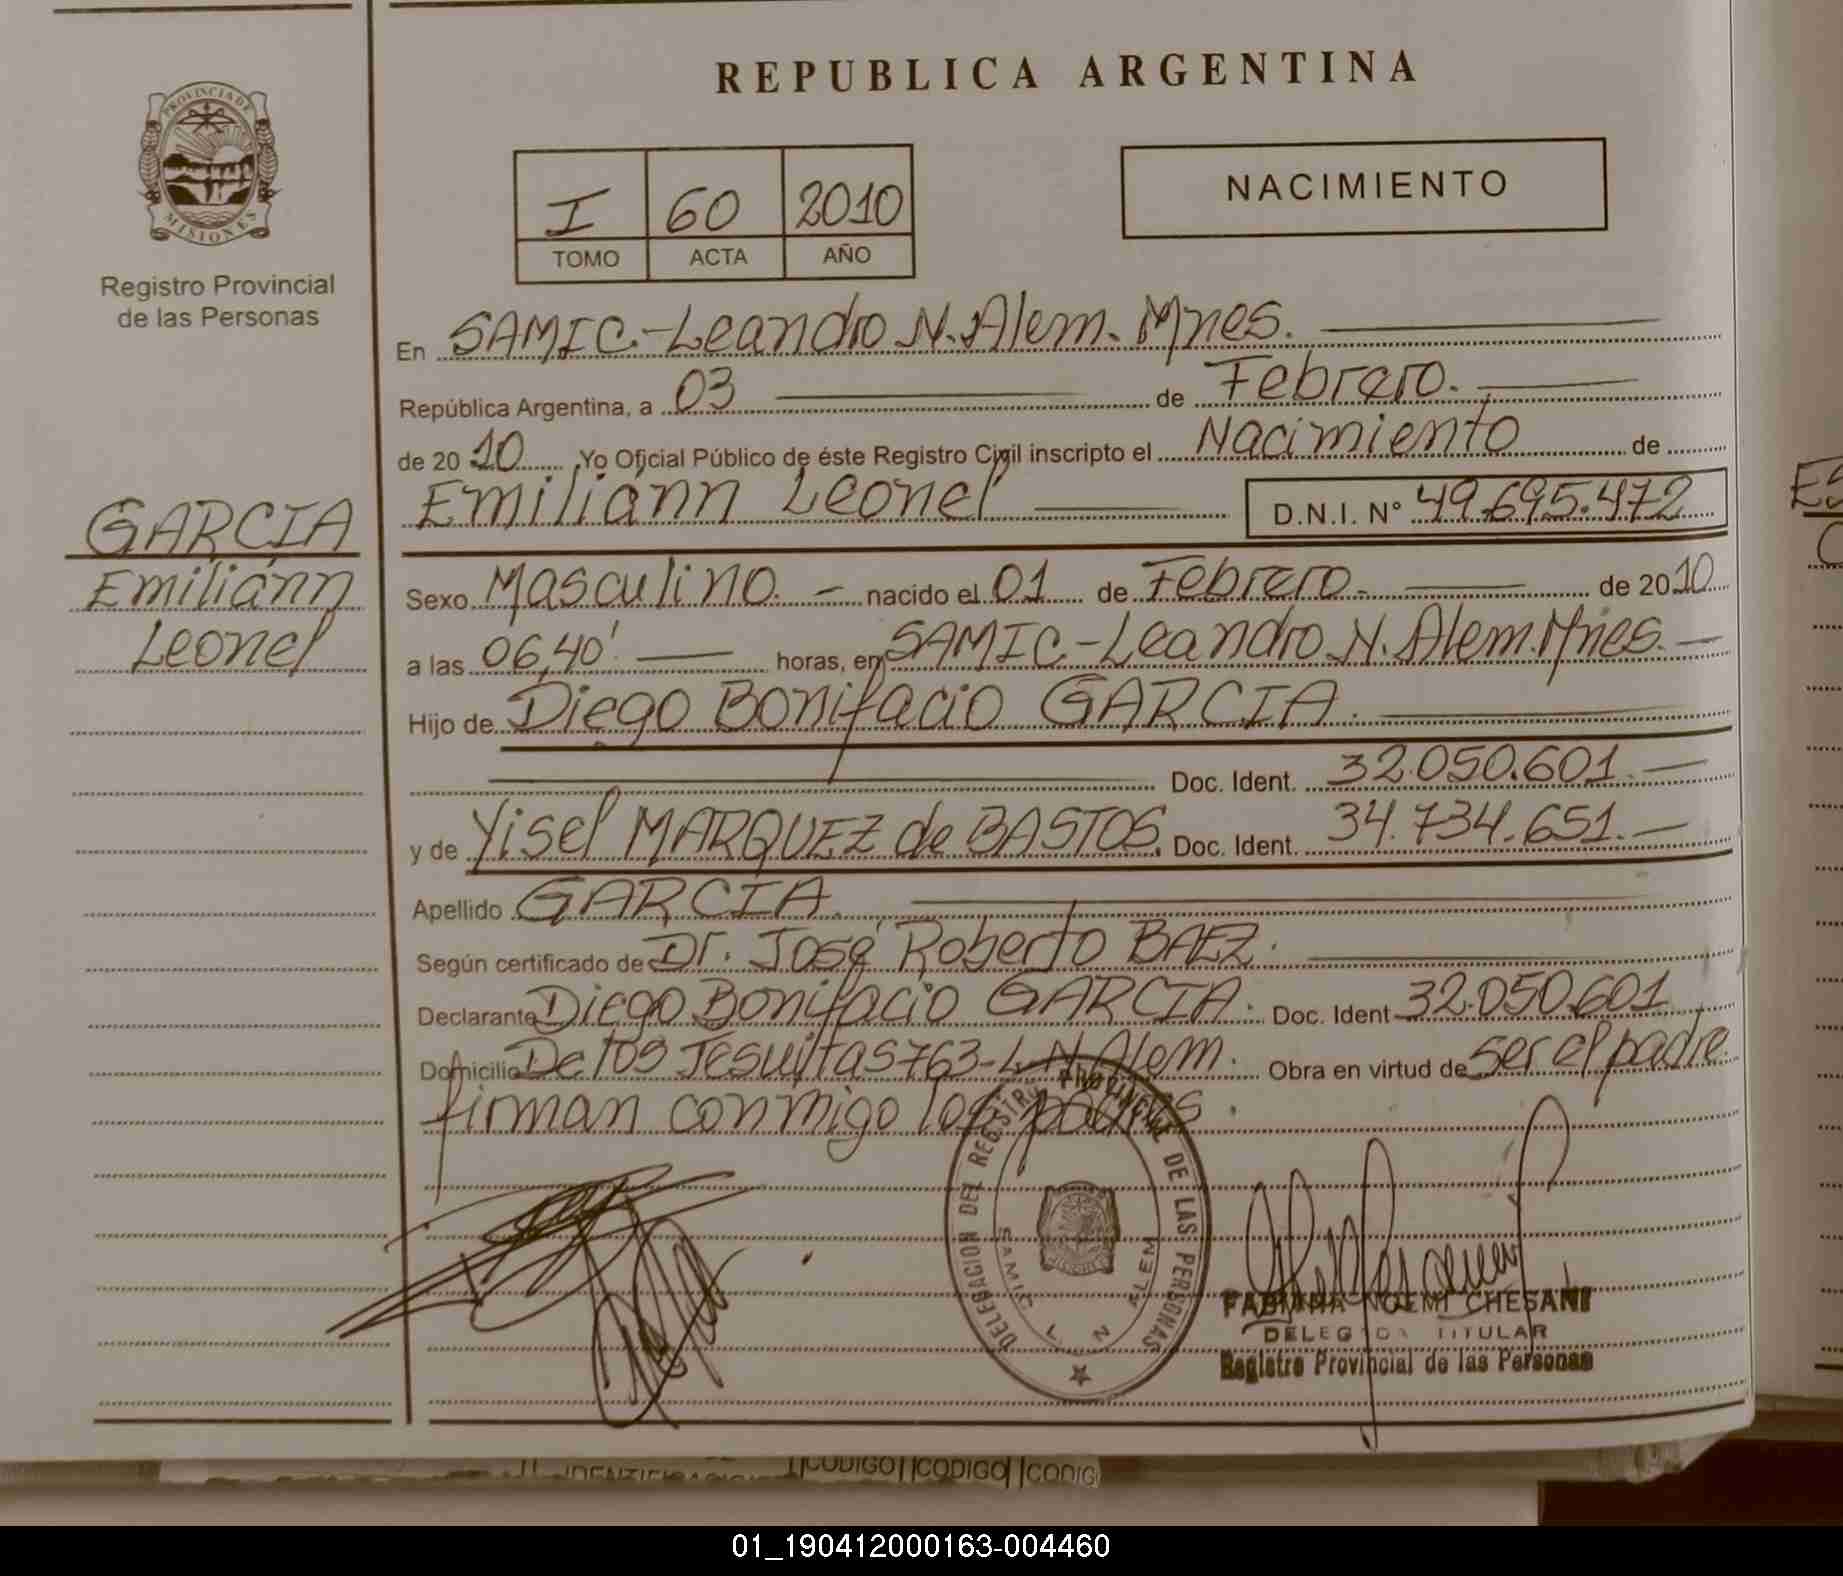 REPUBLICA ARGENTINA
PROVINCIA DE
MISIONES
Registro Provincial
de las Personas
I 60 2010
TOMO ACTA AÑO
NACIMIENTO
En SAMIC.-Leandro N. Alem. Mnes.
República Argentina, a 03 de Febrero.
de 2010 Yo Oficial Público de éste Registro Civil inscripto el Nacimiento de
Emiliánn Leonel D.N.I. N° 49.695.472
GARCIA
Emiliánn
Leonel
Sexo Masculino. nacido el 01 de Febrero. de 2010
a las 06,40' horas, en SAMIC.-Leandro N. Alem. Mnes.
Hijo de Diego Bonifacio GARCIA.
Doc. Ident. 32.050.601.
y de Yisel MARQUEZ de BASTOS. Doc. Ident. 34.734.651.
Apellido GARCIA.
Según certificado de Dr. José Roberto BAEZ.
Declarante Diego Bonifacio GARCIA. Doc. Ident 32.050.601
Domicilio De los Jesuitas 763-L.N.Alem. Obra en virtud de ser el padre
firman conmigo los padres.
DELEGACION DEL REGISTRO PROVINCIAL DE LAS PERSONAS
SAMIC L. N. ALEM
FABIANA NOEMI CHESANI
DELEGADA TITULAR
Registro Provincial de las Personas
CODIGO CODIGO CODIG
01_190412000163-004460